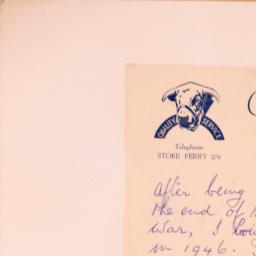 QUALITY SERVICE
Telephone
STOKE FERRY 278
After being
the end of
War, I
in 1946.